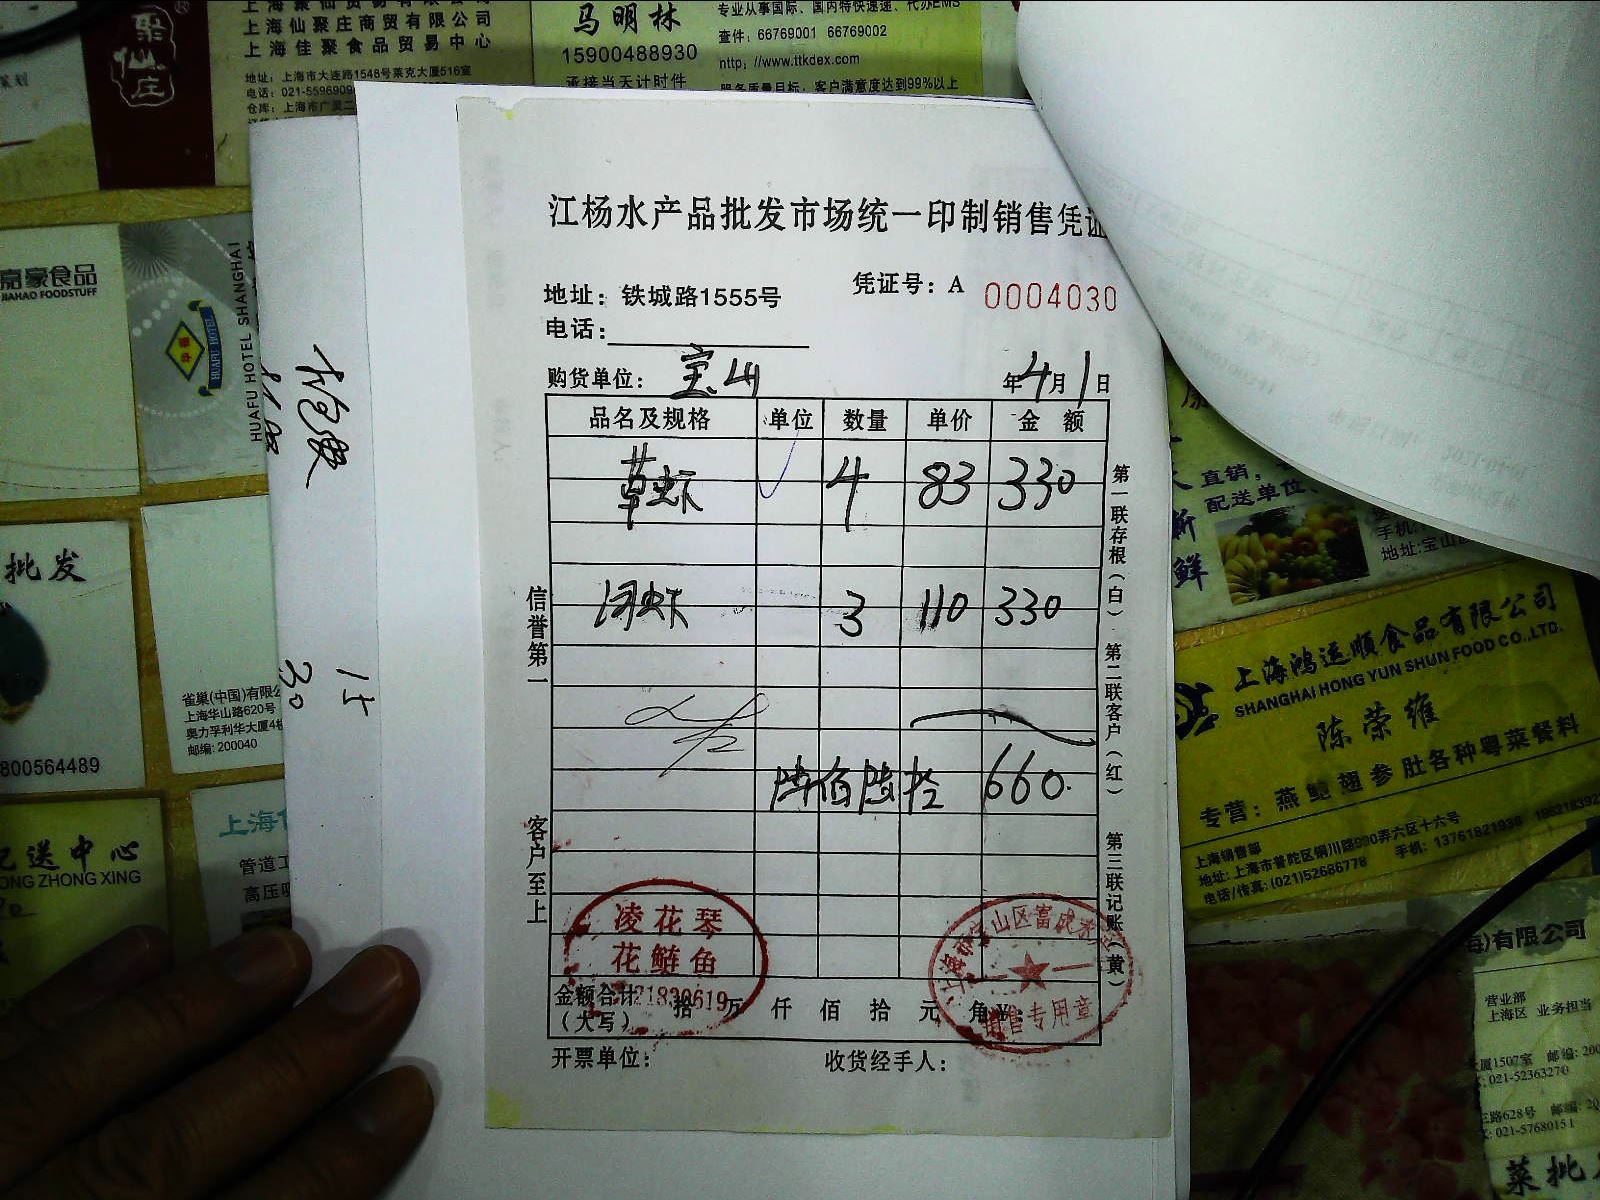 上海仙聚庄商贸有限公司
上海佳聚食品贸易中心
地址：上海市大连路1548号莱克大厦516室
聚仙庄
马明林
15900488930
承接当天计时件
专业从事国际、国内特快速递、代办EMS
查件：66769001 66769002
http://www.ttkdex.com
服务质量目标：客户满意度达到99%以上
嘉豪食品
JIAHAO FOODSTUFF
HUAFU HOTEL SHANGHAI
HUAFU HOTEL
批发
800564489
雀巢(中国)有限公
上海华山路620号
奥力孚利华大厦4楼
邮编:200040
送中心
ONG ZHONG XING
管道工
高压
15
30
江杨水产品批发市场统一印制销售凭证
地址：铁城路1555号
凭证号：A 0004030
电话：
购货单位：宝山
年4月1日
品名及规格 单位 数量 单价 金额
草虾 4 83 330
河虾 3 110 330
陆佰陆拾 660.
信誉第一
客户至上
第一联存根(白)
第二联客户(红)
第三联记账(黄)
凌花琴
花鲢鱼
21830619
销售专用章
金额合计
(大写)
拾 万 仟 佰 拾 元 角
开票单位：
收货经手人：
直销，
配送单位、
新鲜
手机
地址:宝山
上海鸿运顺食品有限公司
SHANGHAI HONG YUN SHUN FOOD CO.,LTD.
陈荣维
专营：燕鲍翅参肚各种粤菜餐料
上海销售部
地址：上海市普陀区铜川路990弄六区十六号
电话/传真:(021)52686778
手机：13761821939
有限公司
营业部
上海区 业务担当
厦1507室
021-52363270
三路628号
021-57680151
菜批